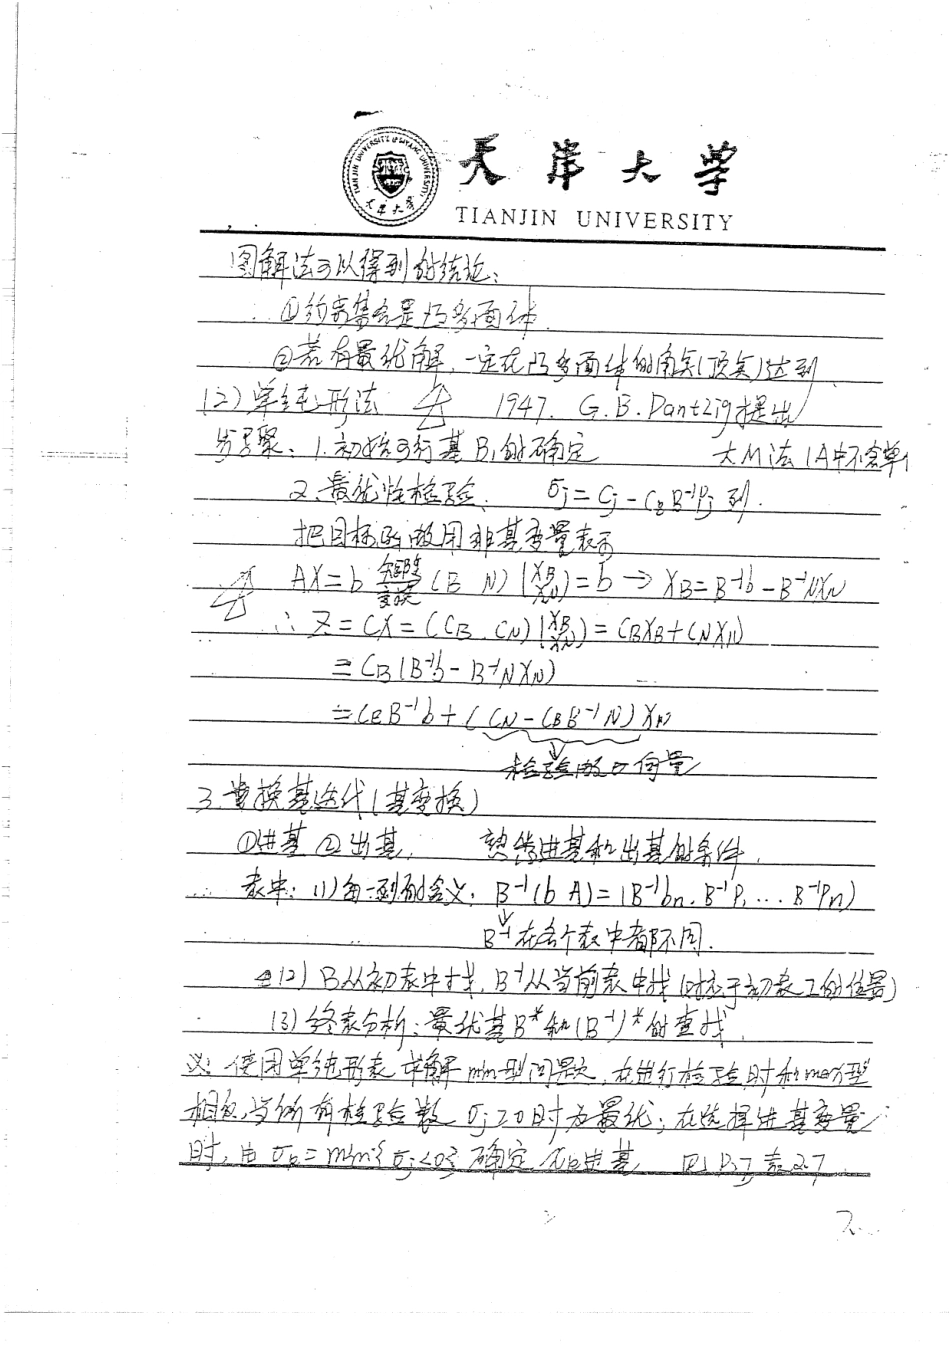 天津大学
TIANJIN UNIVERSITY
图解法可以得到的结论:
①约束集合是凸多面体
②若有最优解,一定在凸多面体的角点(顶点)达到
(2)单纯形法 1947. G.B.Dantzig提出
步骤: 1.初始可行基B₁的确定 大M法(A中不含单
2.最优性检验, σj=Cj-C_B B⁻¹Pj 列.
把目标函数用非基变量表示
AX=b 矩阵变换 (B N)(X_B X_N)=b → X_B=B⁻¹b-B⁻¹NX_N
∴ Z=CX=(C_B, C_N)(X_B X_N)=C_B X_B+C_N X_N
=C_B(B⁻¹b-B⁻¹NX_N)
=C_B B⁻¹b+(C_N-C_B B⁻¹N)X_N
检验数向量
3.替换基迭代(基变换)
①进基 ②出基, 熟悉进基和出基的条件.
表中:(1)每一列的含义: B⁻¹(b A)=(B⁻¹b, B⁻¹P₁ ... B⁻¹Pn)
B⁻¹在各个表中都不同.
(2) B从初表中找, B⁻¹从当前表中找(对应于初表I的位置)
(3)终表分析:最优基B*和(B⁻¹)*的查找
义:使用单纯形表求解min型问题,在进行检验时和max型
相反,当所有检验数σj≥0时为最优;在选择进基变量
时,由σk=min{σj<0}确定 Xk进基 表2.7
2